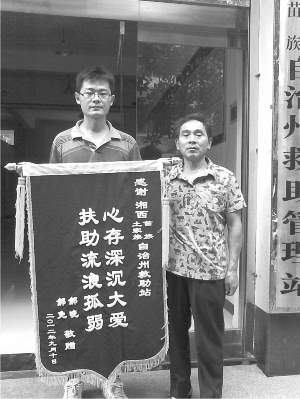 苗族自治州救助管理站
感谢 湘西土家族苗族自治州救助站
心存深沉大爱
扶助流浪孤弱
敬赠
二〇一二年九月十日